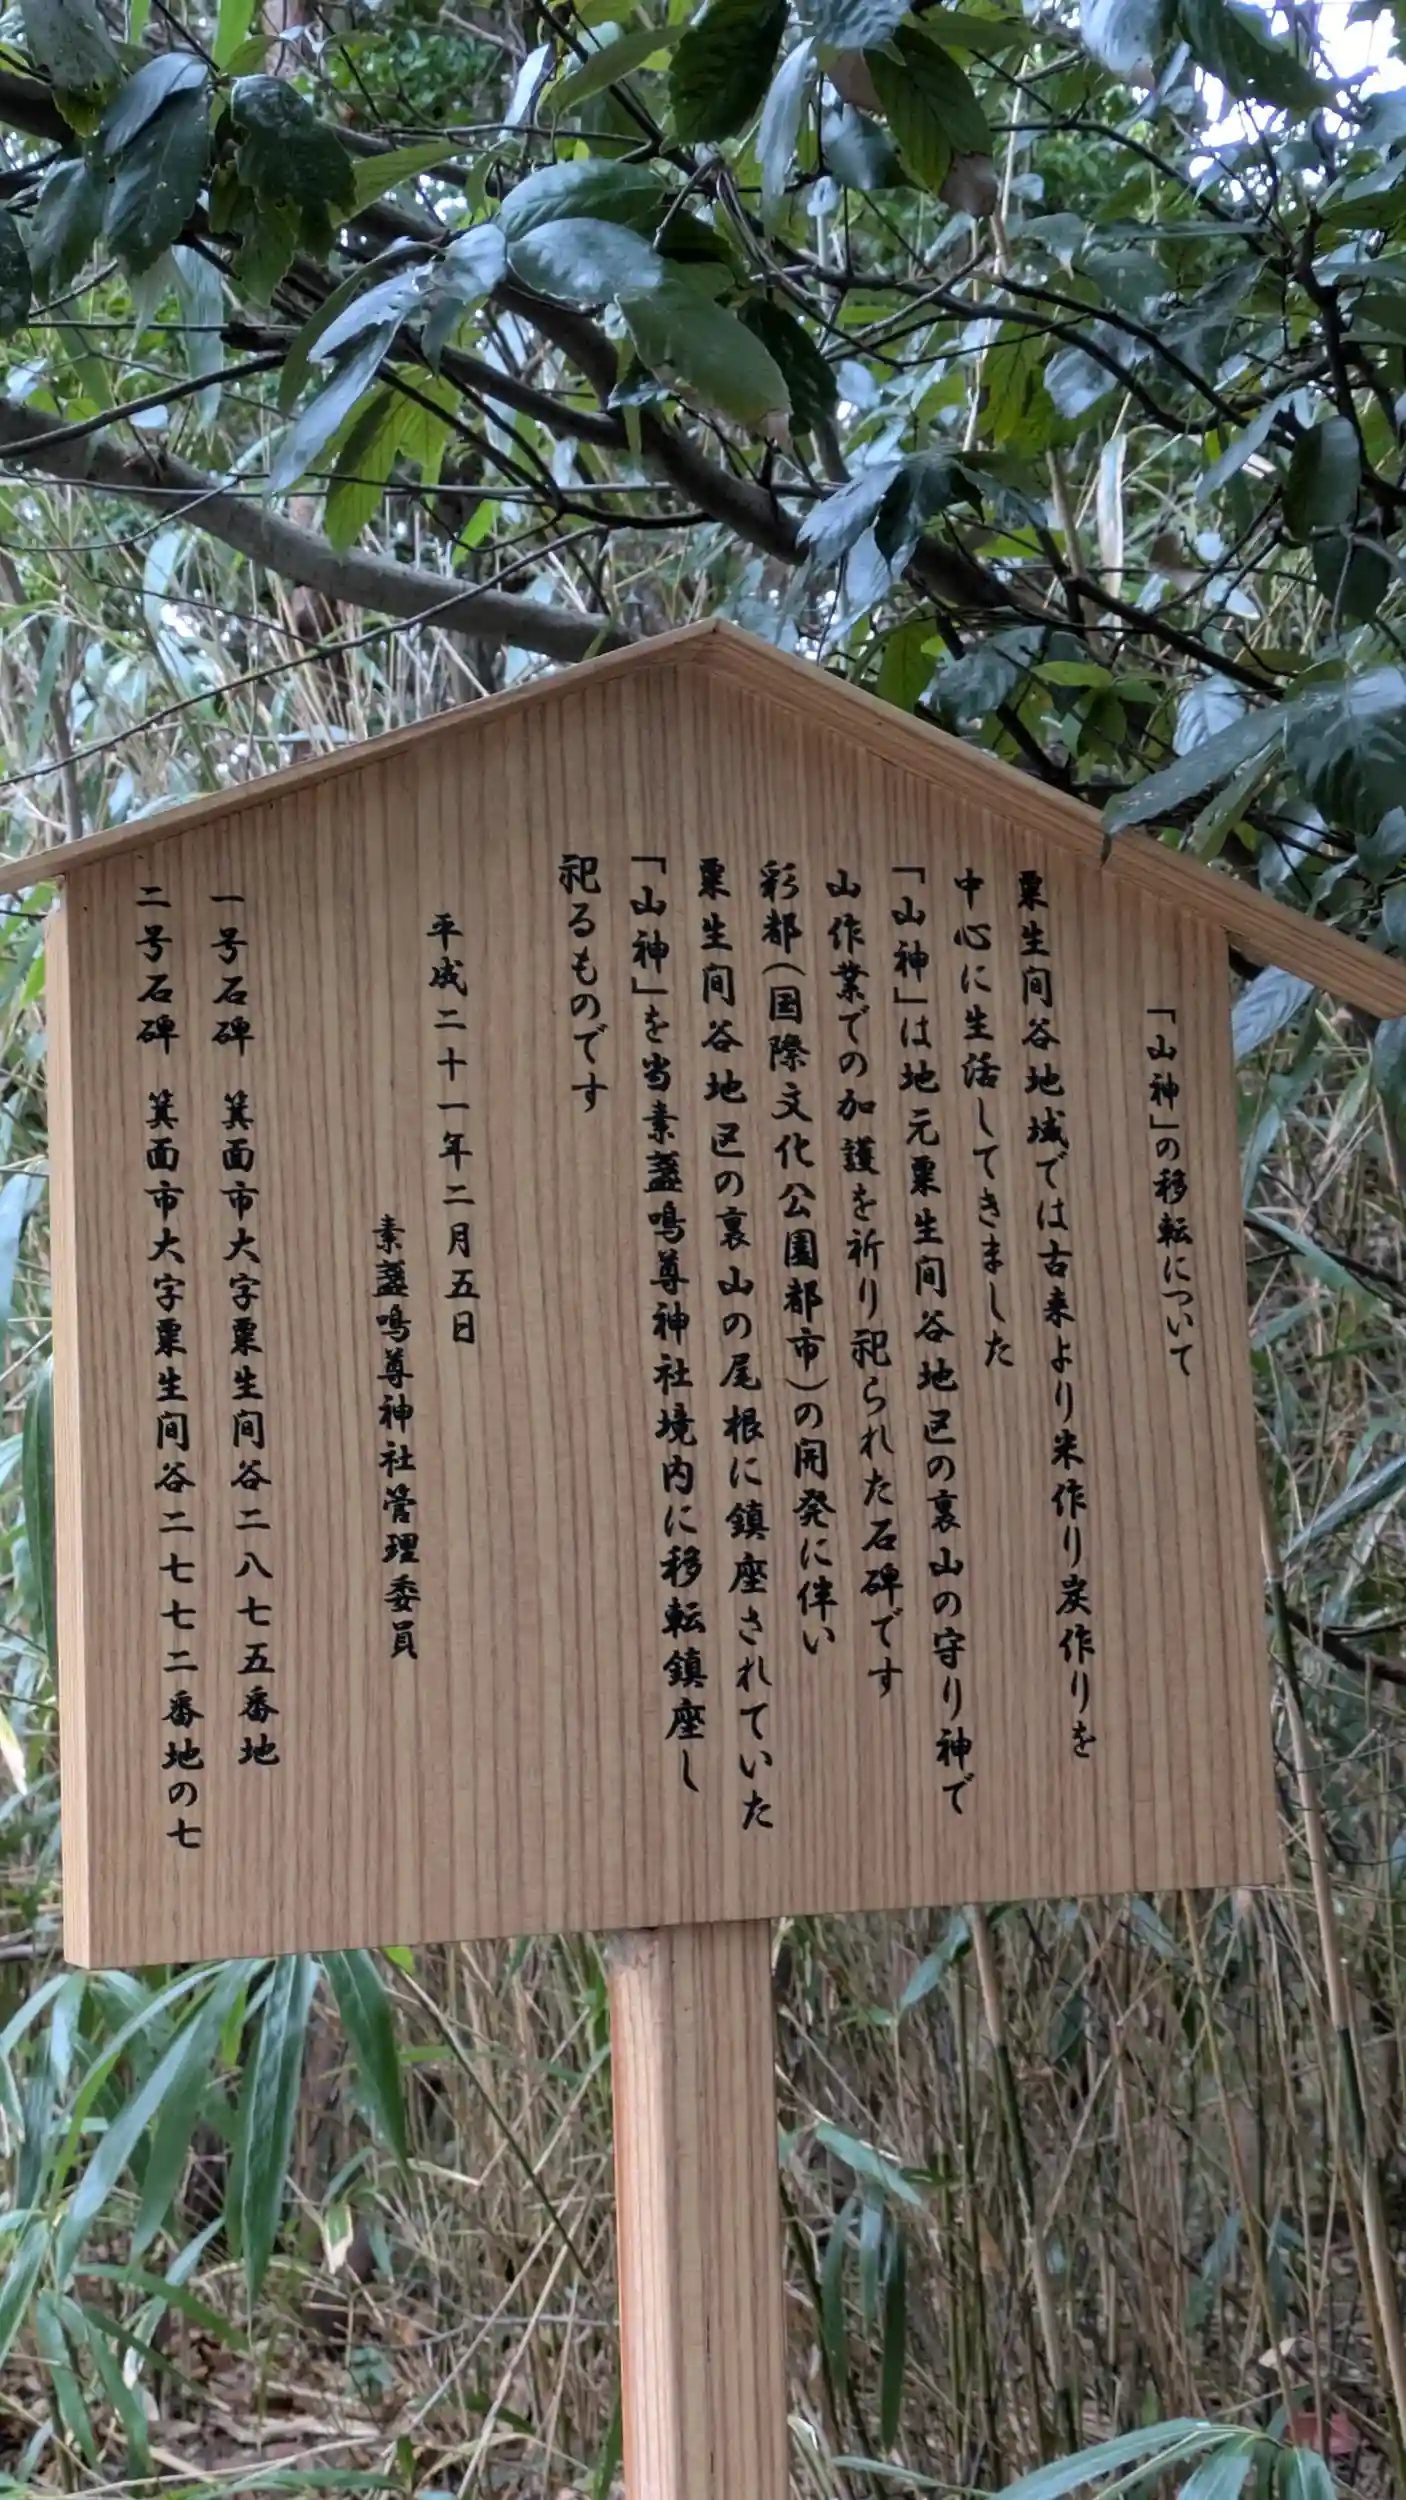 「山神」の移転について
粟生間谷地域では古来より米作り炭作りを
中心に生活してきました
「山神」は地元粟生間谷地区の裏山の守り神で
山作業での加護を祈り祀られた石碑です
彩都（国際文化公園都市）の開発に伴い
粟生間谷地区の裏山の尾根に鎮座されていた
「山神」を当素盞鳴尊神社境内に移転鎮座し
祀るものです
平成二十一年二月五日
素盞鳴尊神社管理委員
一号石碑　箕面市大字粟生間谷二八七五番地
二号石碑　箕面市大字粟生間谷二七七二番地の七